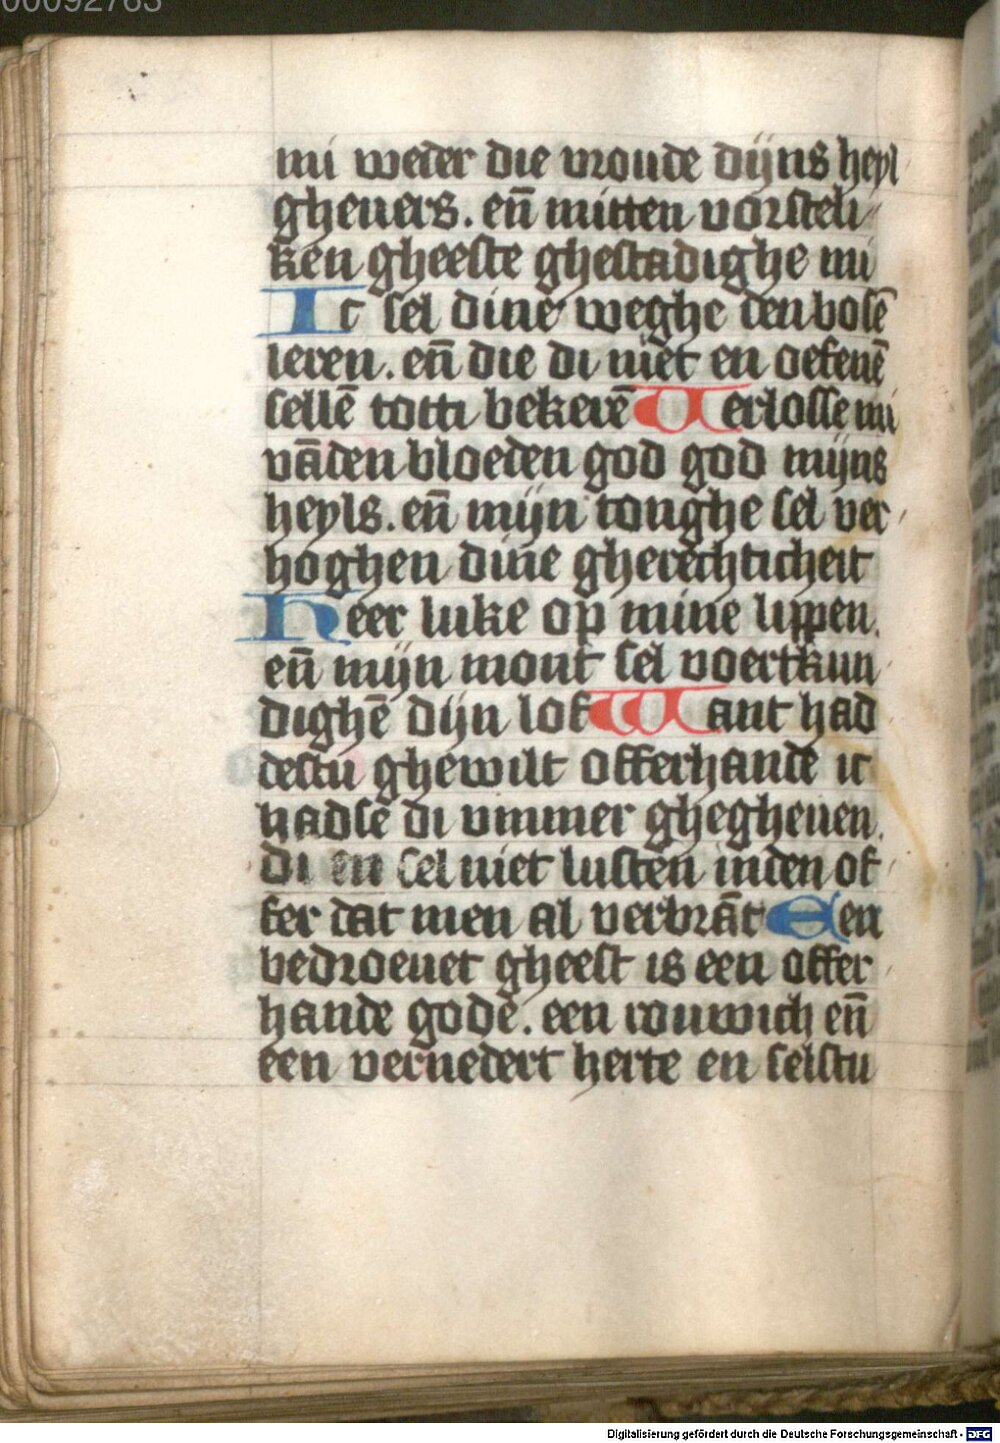 00092763
mi weder die vroude dijns heyl
gheuers. en̄ mitten vorsteli
ken gheeste ghestadighe mi
Ic sel dine weghe den bosē
leren. en̄ die di niet en oefenē
sellē totti bekerē Verlosse mi
vādenbloeden god god mijns
heyls. en̄ mijn tonghe sel ver
hoghen dine gherechticheit
Heer luke op mine lippen.
en̄ mijn mont sel voertkun
dighē dijn lof Want had
destu ghewilt offerhande ic
hadse di vmmer ghegheuen.
di en sel niet lusten inden of
fer dat men al verbrāt Een
bedroeuet gheest is een offer
hande gode. een rouwich en̄
een vernedert herte en selstu
Digitalisierung gefördert durch die Deutsche Forschungsgemeinschaft - DFG